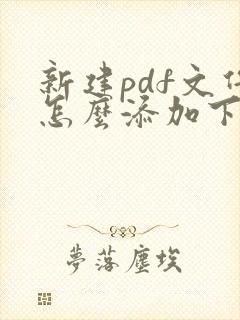 新建pdf文
怎麼添加下
夢落塵埃